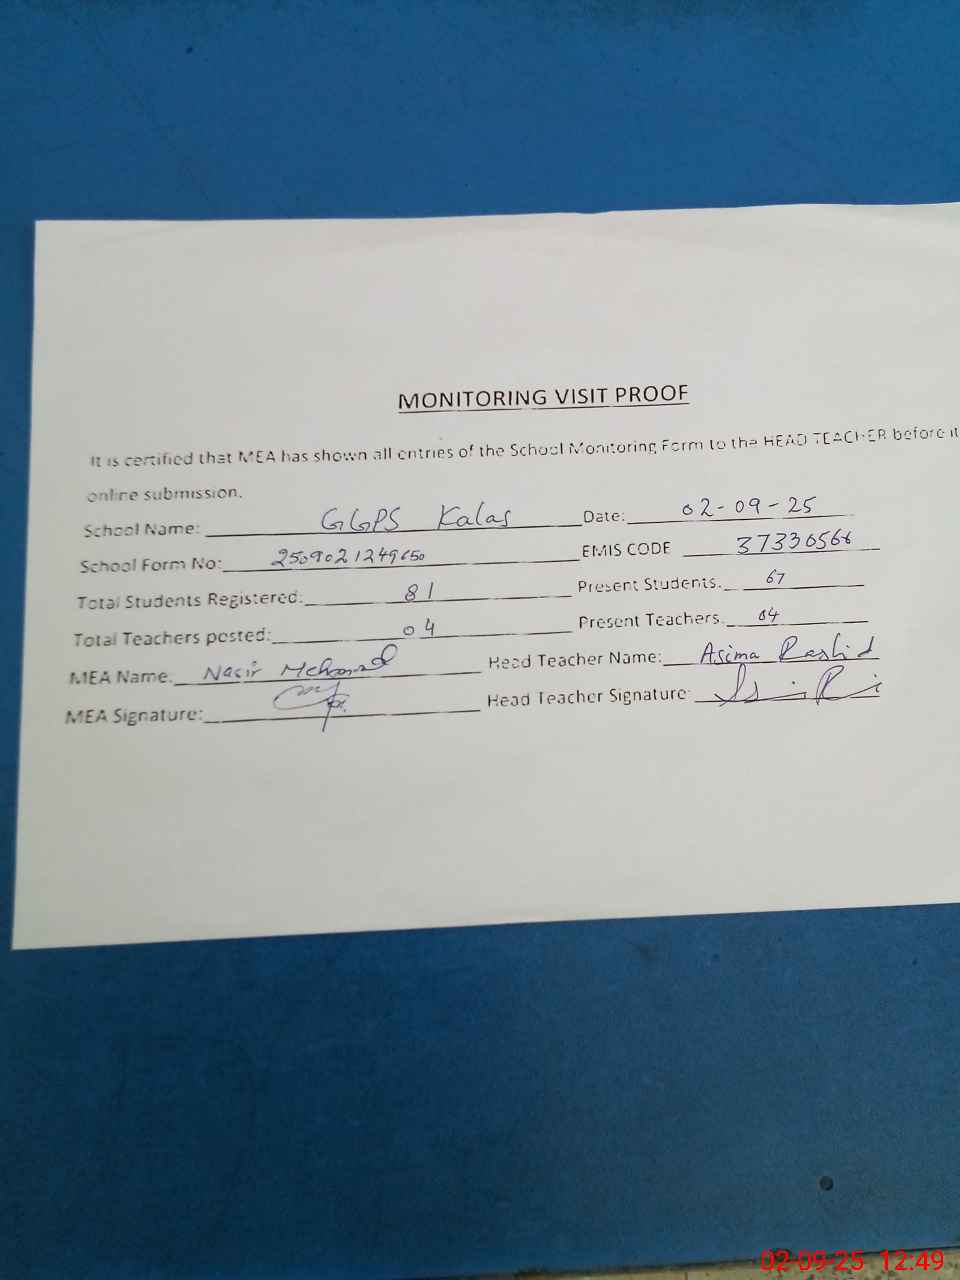 MONITORING VISIT PROOF
It is certified that MEA has shown all entries of the School Monitoring Form to the HEAD TEACHER before it
online submission.
School Name: GGPS Kalas Date: 02-09-25
School Form No: 2509021249650 EMIS CODE 37330566
Total Students Registered: 81 Present Students. 67
Total Teachers posted: 04 Present Teachers. 04
MEA Name. Nasir Mehmood Head Teacher Name: Asima Rashid
MEA Signature: Head Teacher Signature:
02-09-25 12:49